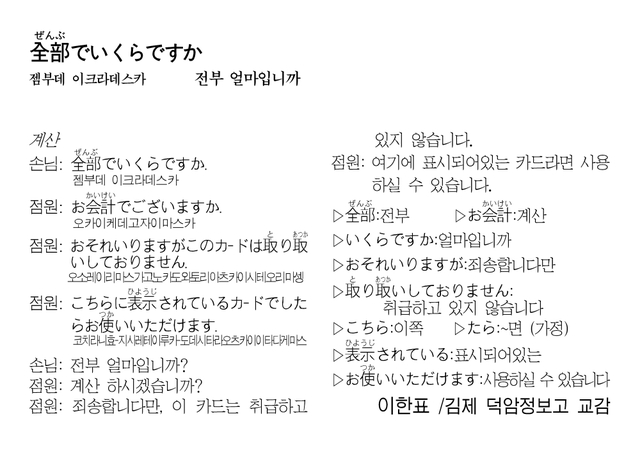 ぜんぶ
全部でいくらですか
젬부데 이크라데스카 전부 얼마입니까
계산
ぜんぶ
손님: 全部でいくらですか.
젬부데 이크라데스카
かいけい
점원: お会計でございますか.
오카이케데고자이마스카
と あつか
점원: おそれいりますがこのカードは取り取
いしておりません.
오소레이리마스가고노카도와토리아츠카이시테오리마셍
ひょうじ
점원: こちらに表示されているカードでした
つか
らお使いいただけます.
코치라니효-지사레테이루카-도데시타라오츠카이이타다게마스
손님: 전부 얼마입니까?
점원: 계산 하시겠습니까?
점원: 죄송합니다만, 이 카드는 취급하고
있지 않습니다.
점원: 여기에 표시되어있는 카드라면 사용
하실 수 있습니다.
ぜんぶ かいけい
▷全部:전부 ▷お会計:계산
▷いくらですか:얼마입니까
▷おそれいりますが:죄송합니다만
と あつか
▷取り取いしておりません:
취급하고 있지 않습니다
▷こちら:이쪽 ▷たら:~면 (가정)
ひょうじ
▷表示されている:표시되어있는
つか
▷お使いいただけます:사용하실 수 있습니다
이한표 /김제 덕암정보고 교감